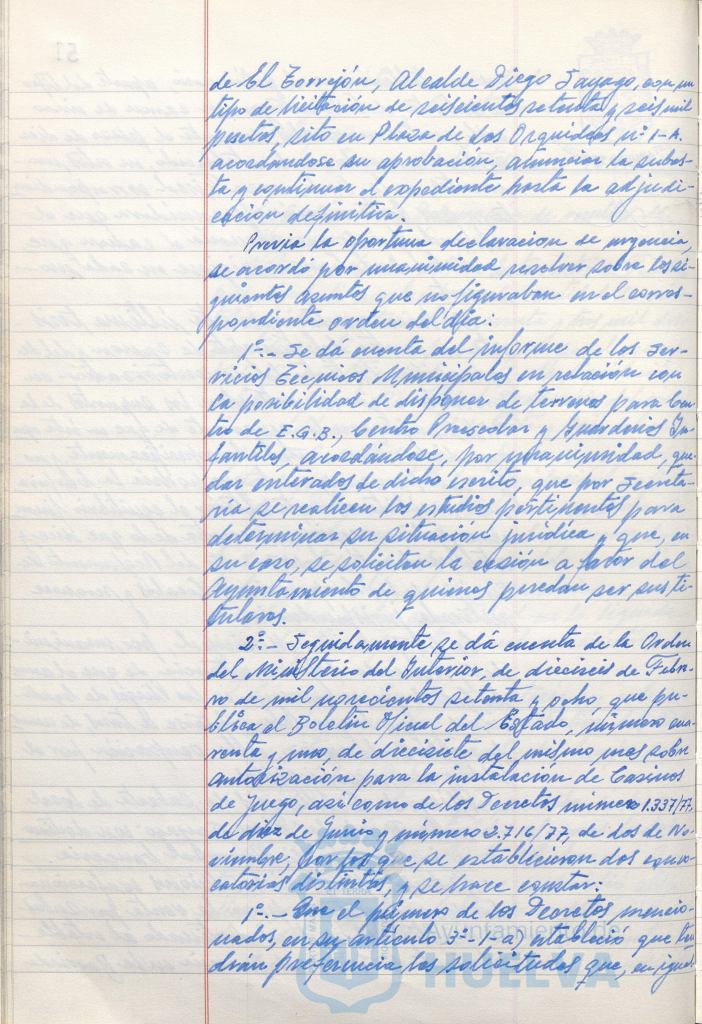 51
de El Torrejón, Alcalde Diego Sayago, con un
tipo de licitación de seiscientas setenta y seis mil
pesetas, sito en Plaza de las Orquídeas nº 1-A.
acordándose su aprobación, anunciar la subas-
ta y continuar el expediente hasta la adjudi-
cación definitiva.
Previa la oportuna declaración de urgencia,
se acordó por unanimidad resolver sobre los si-
guientes asuntos que no figuraban en el corres-
pondiente orden del día:
1º.- Se dá cuenta del informe de los Ser-
vicios Técnicos Municipales en relación con
la posibilidad de disponer de terrenos para Cen-
tro de E.G.B., Centro Preescolar y Guarderías In-
fantiles, acordándose, por unanimidad, que-
dar enterados de dicho escrito, que por Secreta-
ría se realicen los estudios pertinentes para
determinar su situación jurídica y que, en
su caso, se soliciten la cesión a favor del
Ayuntamiento de quienes puedan ser sus ti-
tulares.
2º.- Seguidamente se dá cuenta de la Orden
del Ministerio del Interior, de dieciseis de Febre-
ro de mil novecientos setenta y ocho, que pu-
blica el Boletín Oficial del Estado, número cua-
renta y uno, de diecisiete del mismo mes sobre
autorización para la instalación de Casinos
de Juego, así como de los Decretos número 1.337/77,
de diez de Junio y número 2.716/77, de dos de No-
viembre, por los que se establecieron dos convo-
catorias distintas, y se hace constar:
1º.- Que el primero de los Decretos mencio-
nados, en su artículo 3º-1-a) estableció que ten-
drán preferencia las solicitudes que, en igual
Ayuntamiento de
HUELVA